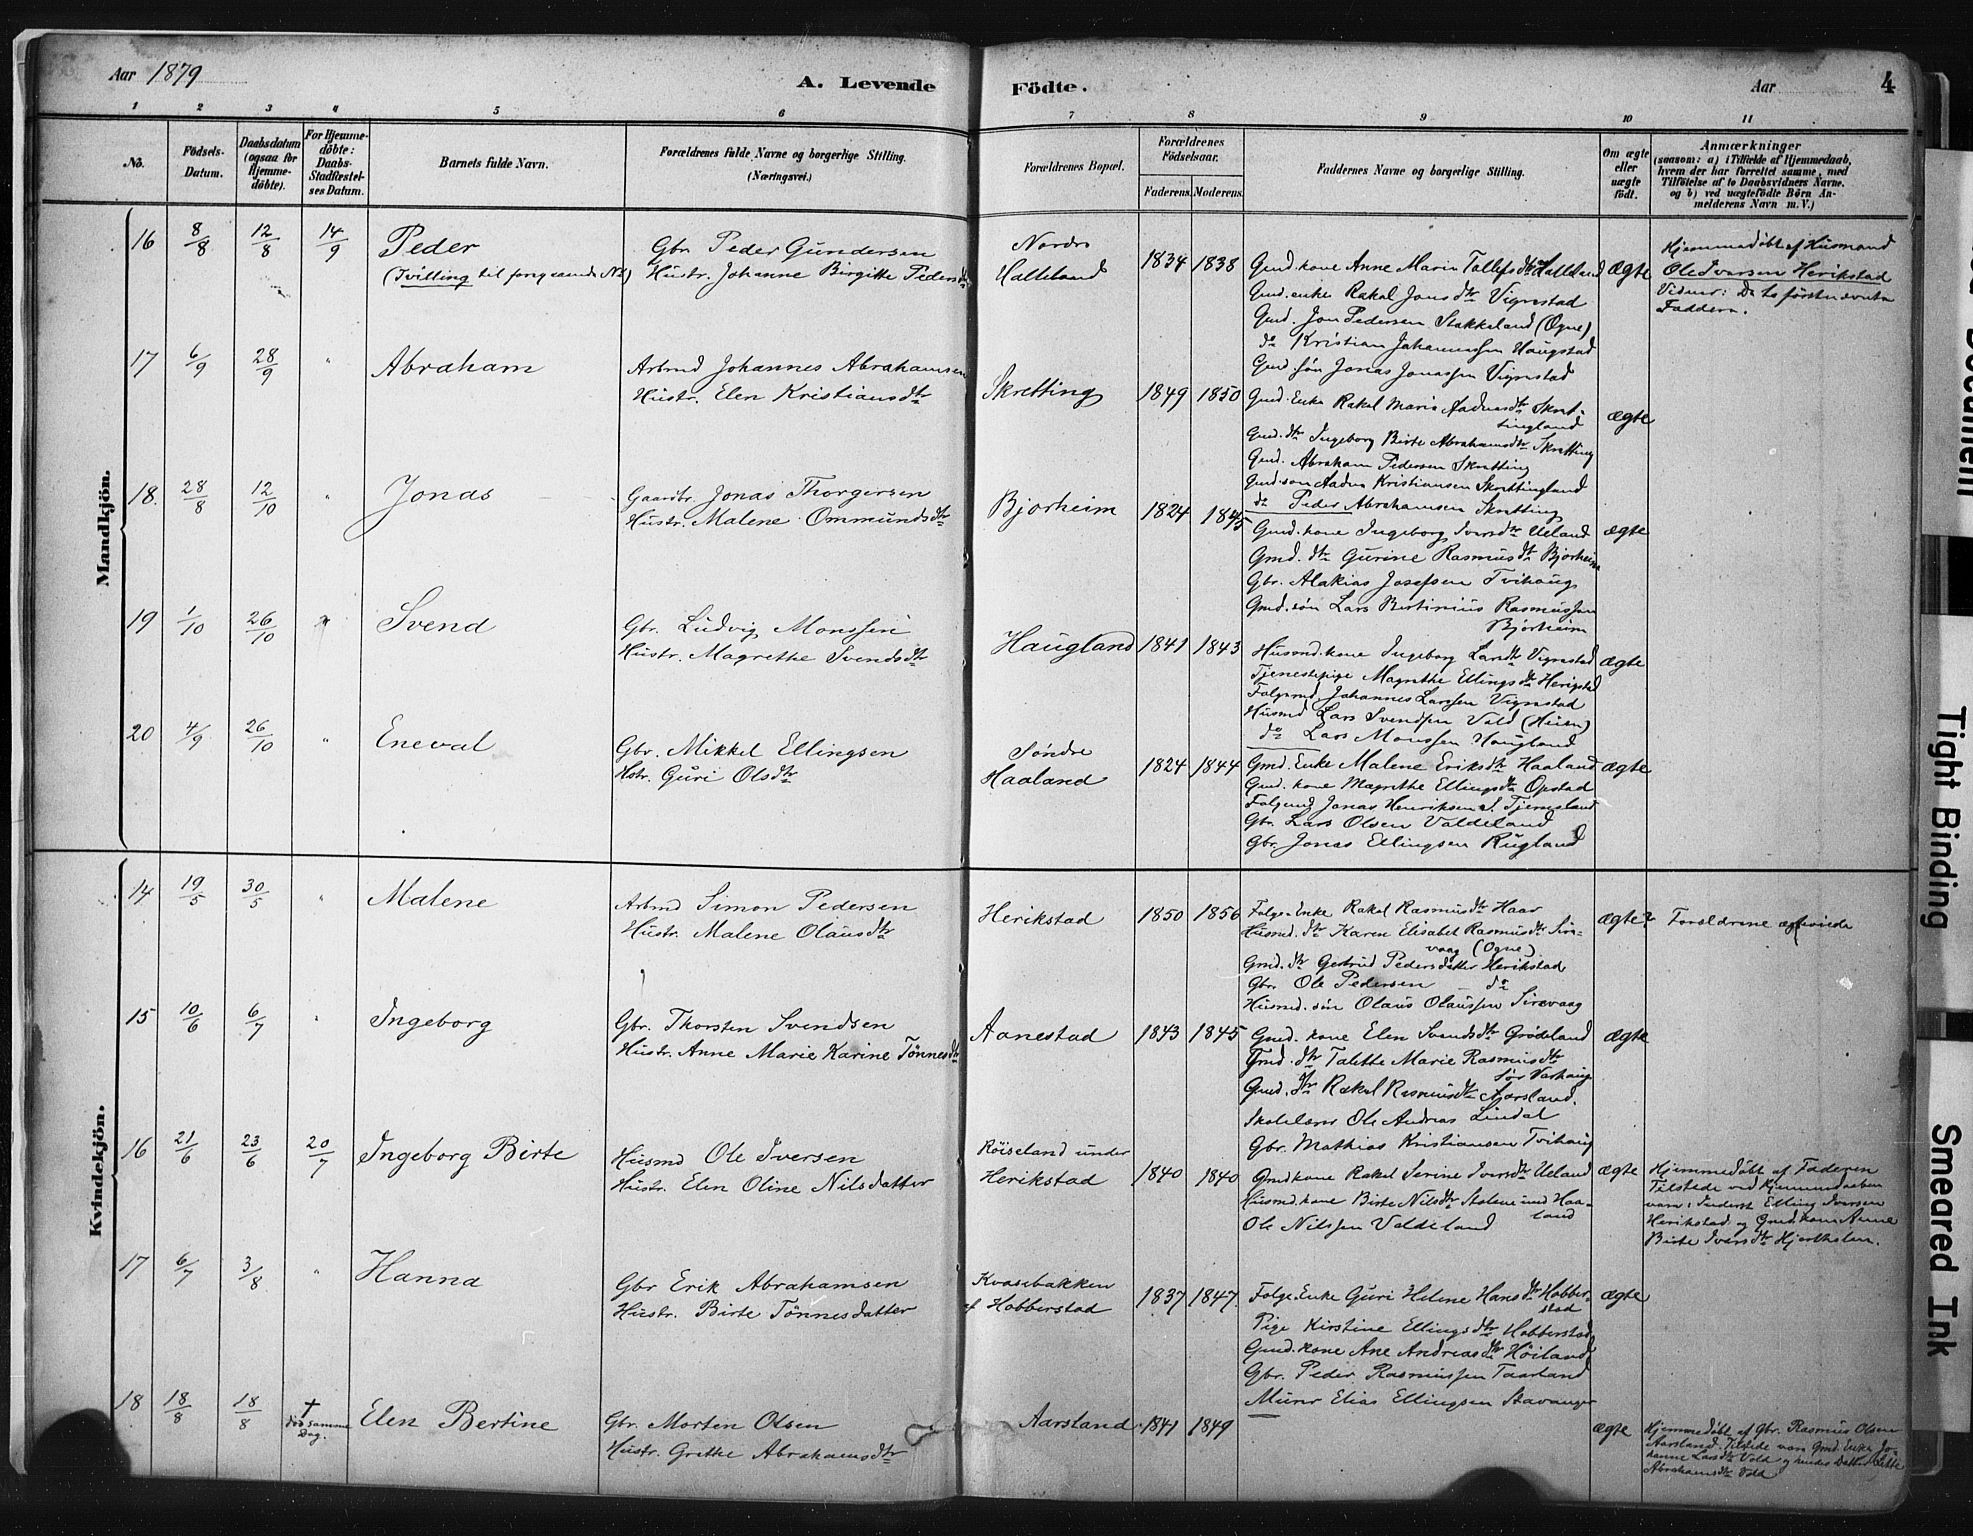 Aar 1879
A. Levende Födte.
Aar
4
1 2 3 4 5 6 7 8 9 10 11
No.
Födsels-Datum.
Daabsdatum (ogsaa for Hjemme-döbte).
For Hjemme-döbte: Daabs-Stadfæstel-ses Datum.
Barnets fulde Navn.
Forældrenes fulde Navne og borgerlige Stilling. (Næringsvei.)
Forældrenes Bopæl.
Forældrenes Födselsaar.
Faderens. Moderens.
Faddernes Navne og borgerlige Stilling.
Om ægte eller uægte födt.
Anmærkninger
(saasom: a) i Tilfælde af Hjemmedaab,
hvem der har forrettet samme, med
Tilföielse af to Daabsvidners Navne.
og b) ved uægtefödte Börn An-
melderens Navn m. V.)
Mandkjön.
16 8/8 12/8 14/9 Peder
(Tvilling til foregaaende No)
Gbr. Peder Gundersen
Hustr. Johanne Birgitte Pedersdtr
Nordre
Halleland
1834 1838
Gmd. kone Anne Maria Tollefsdtr Halleland
Gmd. enke Rakel Jonsdtr Vigrestad
Gmd. Jon Pedersen Stokkeland (Ogne)
do Kristian Johannessen Haugstad
Gmd. søn Jonas Jonassen Vigrestad
ægte
Hjemmedøbt af Husmand
Ole Iversen Herikstad
Vidner: De to førstnævnte
Faddere.
17 6/9 28/9 " Abraham
Arbmd Johannes Abrahamsen
Hustr. Elen Kristiansdtr
Skretting
1849 1850
Gmd. Enke Rakel Maria Aadnesdtr Skret-
tingland
Gmd. dtr Ingeborg Birte Abrahamsdtr Skretting
Gmd. Abraham Pedersen Skretting
Gmd. søn Aaden Kristiansen Skrettingland
do Peder Abrahamsen Skretting
ægte
18. 28/8 12/10 " Jonas
Gaardbr. Jonas Thorgersen
Hustr. Malene Ommundsdtr
Bjorheim
1824 1845
Gmd. kone Ingeborg Iversdtr Ueland
Gmd. dtr Gurine Rasmusdtr Bjorheim
Gbr. Malakias Josefsen Tvihaug
Gmd. søn Lars Bertinius Rasmussen
Bjorheim
ægte
19 1/10 26/10 " Svend
Gbr. Ludvig Monssen
Hustr. Magrethe Svendsdtr
Haugland
1841 1843
Husmd. kone Ingeborg Larsdtr Vigrestad
Tjenestepige Magrethe Ellingsdtr Herigstad
Folgemd Johannes Larssen Vigrestad
Husmd Lars Svendsen Vold
do Lars Monssen Haugland
ægte
20 4/9 26/10 " Eneval
Gbr. Mikkel Ellingsen
Hstr. Guri Olsdtr
Søndre
Haaland
1824 1844
Gmd. Enke Malene Eriksdtr Haaland
Gmd. kone Magrethe Ellingsdtr Opstad
Folgemd Jonas Henriksen S. Tjemsland
Gbr. Lars Olsen Valdeland
Gbr. Jonas Ellingsen Rugland
ægte
Kvindekjön.
14 19/5 30/5 " Malene
Arbmd Simon Pedersen
Hustr. Malene Olausdtr
Herikstad
1850 1856
Folge. Enke Rakel Rasmusdtr Haar
Husmd. dtr Karen Elisabet Rasmusdtr Sire-
vaag (Ogne)
Gmd. dtr Gertrud Pedersdatter Herikstad
Gbr. Ole Pedersen do
Husmd. søn Olaus Olaussen Sirevaag
ægte?
Forældrene ægteviede
15 10/6 6/7 " Ingeborg
Gbr. Thorsten Svendsen
Hustr. Anne Marie Karine Tønnesdtr
Aanestad
1843 1845
Gmd. kone Elen Svendsdtr Grødeland
Gmd. dtr Talette Marie Rasmusdtr
Sør Varhaug
Gmd. dtr Rakel Rasmusdtr Aarsland.
Skolelærer Ole Andreas Lindal
Gbr. Mathias Kristiansen Tvihaug
ægte
16 21/6 23/6 20/7 Ingeborg Birte
Husmd Ole Iversen
Hustr. Elen Oline Nilsdatter
Røiseland under
Herikstad
1840 1840
Gmd kone Rakel Serine Iversdtr Ueland
Husmd. kone Birte Nilsdtr Stolene und Haa-
land
Ole Nilssen Valdeland
ægte
Hjemmedøbt af Faderen
Tilstede ved Hjemmedaaben
vare: Inderst Elling Iversen
Herikstad og Gmd. kone Anne
Birte Iversdtr
17 6/7 3/8 " Hanna
Gbr Erik Abrahamsen
Hustr. Birte Tønnesdatter
Kvasebakken
af Hobberstad
1837 1847.
Folge. Enke Guri Helene Hansdtr Hobber-
stad
Pige Kirstine Ellingsdtr Hobberstad
Gmd. kone Ane Andreasdtr Høiland
Gbr. Peder Rasmussen Taarland
Murer Elias Ellingsen Stavanger
ægte
18 18/8 18/8 † død samme Dag. Elen Bertine
Gbr. Morten Olsen
Hustr. Grethe Abrahamsdtr
Aarsland
1841 1849
ægte
Hjemmedøbt af Gbr. Rasmus Olsen
Aarsland. Tilstede vare Gmd. Enke Jo-
hanne Larsdtr Vold og hendes Datter
Abrahamsdtr Vold
Tight Binding
Smeared Ink